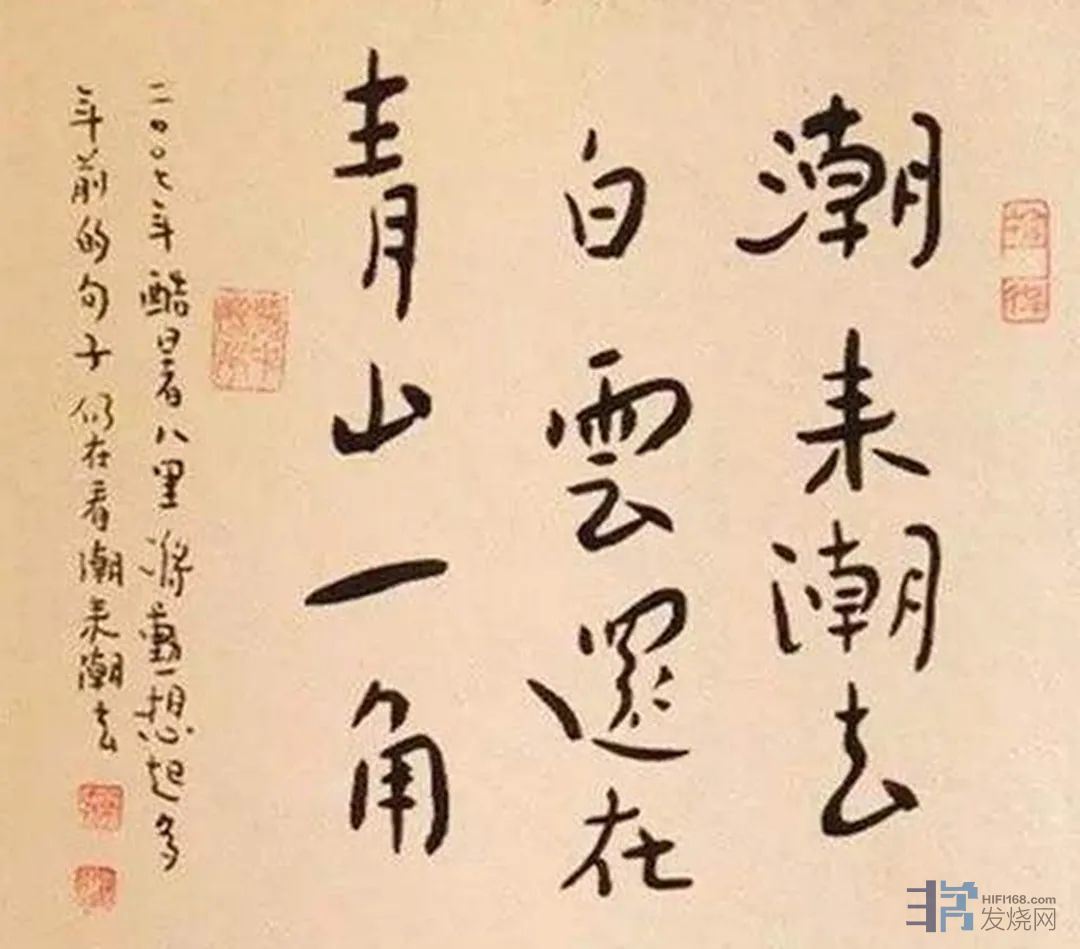 潮来潮去
白雲還在
青山一角
二〇〇七年酷暑八里想起多
年前的句子仍在看潮来潮去
HIFI168.com
发烧网